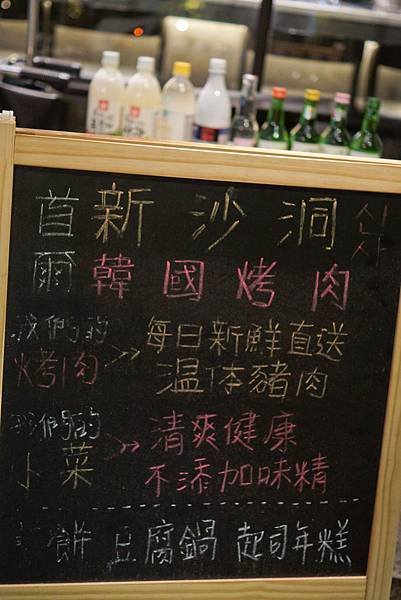 首爾
新沙洞
韓國烤肉
我們的
烤肉 >> 每日新鮮直送
溫体豬肉
我們的
小菜 >> 清爽健康
不添加味精
餅 豆腐鍋 起司年糕